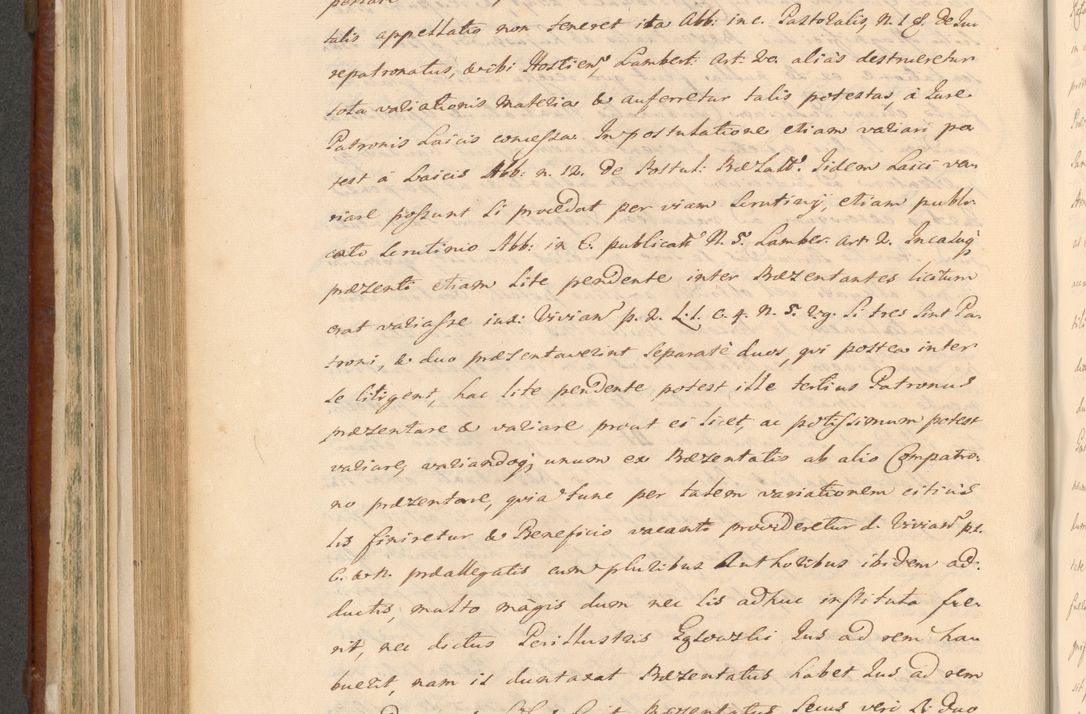 talis appellatio non teneret ita Abb: in c. Pastoralis, N. 18. de Ju-
repatronatus, & ibi Hostien: Lambert: Art. 20. alias destrueretur
tota variationis materia & auferretur talis potestas, à Jure
Patronis Laicis concessa. In postulatione etiam variari po-
test à Laicis Abb: n. 12. de Postul: Prælatt: Iidem Laici va-
riare possunt si procedat per viam scrutinij, etiam publi-
cato scrutinio Abb: in C. publicati N. 5. Lamber. Art. 2. In casuq3
præzenti etiam Lite pendente inter Præzentantes licitum
erat variasse iux: Vivian: p. 2. L. 1. C. 4. N. 5. Vg. Si tres sint Pa-
troni, & duo præsentaverint separatè duos, qvi postea inter
se litigent, hac lite pendente potest ille tertius Patronus
præzentare & variare prout ei licet, ac potissimum potest
variare, variandoq3 unum ex Præzentatis ab alio Compatro-
no præzentare, qvia tunc per talem variationem citius
lis finiretur & Beneficio vacanti provideretur d. Vivian: p. 2.
C. & N. præallegatis cum pluribus Authoribus ibidem ad-
ductis, multo magis dum nec lis adhuc instituta fue-
rit, nec dictus Perillustris Jus ad rem ha-
buerit, nam is duntaxat Præzentatus habet Jus ad rem
Præzentatus Secus veri Si duo